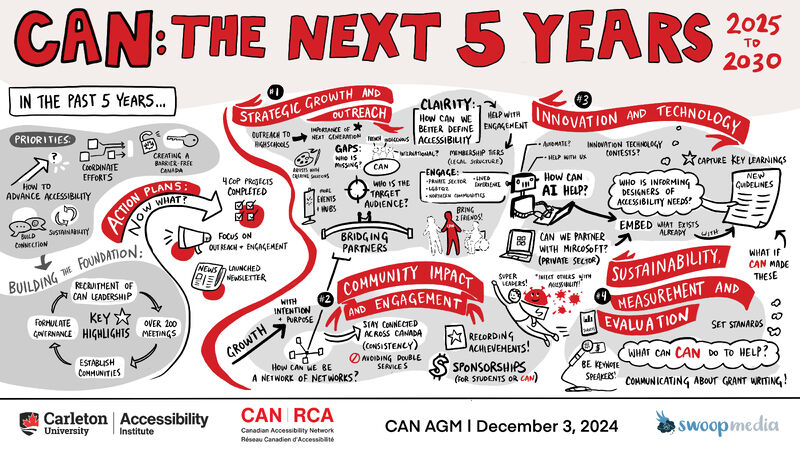 CAN: THE NEXT 5 YEARS
2025
TO
2030
IN THE PAST 5 YEARS...
PRIORITIES:
COORDINATE
EFFORTS
CREATING A
BARRIER-FREE
CANADA
?
HOW TO
ADVANCE ACCESSIBILITY
BUILD
CONNECTION
SUSTAINABILITY
ACTION PLANS:
NOW WHAT?
4 COP PROJECTS
COMPLETED
FOCUS ON
OUTREACH + ENGAGEMENT
NEWS
LAUNCHED
NEWSLETTER
BUILDING THE FOUNDATION:
RECRUITMENT OF
CAN LEADERSHIP
KEY
HIGHLIGHTS
FORMULATE
GOVERNANCE
OVER 200
MEETINGS
ESTABLISH
COMMUNITIES
#1
STRATEGIC GROWTH AND
OUTREACH
OUTREACH TO
HIGHSCHOOLS
IMPORTANCE OF
NEXT GENERATION
GAPS:
WHO IS
MISSING?
FRENCH
INDIGENOUS
INTERNATIONAL?
CAN
ARTISTS WITH
CREATIVE SOLUTIONS
MORE
EVENTS
+ HUBS
WHO IS THE
TARGET
AUDIENCE?
BRIDGING
PARTNERS
CLAIRITY:
HOW CAN WE
BETTER DEFINE
ACCESSIBILITY
HELP WITH
ENGAGEMENT
MEMBERSHIP TIERS
(LEGAL STRUCTURE)
ENGAGE:
• PRIVATE SECTOR
• LGBTQ2
• NORTHERN COMMUNITIES
• LIVED
EXPERIENCE
BRING
FRIENDS!
#2
COMMUNITY IMPACT
AND ENGAGEMENT
GROWTH
WITH
INTENTION +
PURPOSE
HOW CAN WE BE
A NETWORK OF NETWORKS?
STAY CONNECTED
ACROSS CANADA
(CONSISTENCY)
AVOIDING DOUBLE
SERVICES
RECORDING
ACHIEVEMENTS!
SPONSORSHIPS
(FOR STUDENTS OR CAN)
SUPER
LEADERS!
"INFECT OTHERS WITH
ACCESSIBILITY!"
#3
INNOVATION AND TECHNOLOGY
- AUTOMATE?
- HELP WITH UX
INNOVATION TECHNOLOGY
CONTESTS?
CAPTURE KEY LEARNINGS
HOW CAN
AI HELP?
WHO IS INFORMING
DESIGNERS OF
ACCESSIBILITY NEEDS?
NEW
GUIDELINES
EMBED
WHAT EXISTS
ALREADY
WITH
CAN WE PARTNER
WITH MIRCOSOFT?
(PRIVATE SECTOR)
WHAT IF
CAN MADE
THESE
#4
SUSTAINABILITY,
MEASUREMENT AND
EVALUATION
SET STANARDS
WHAT CAN CAN DO TO HELP?
BE KEYNOTE
SPEAKERS!
COMMUNICATING ABOUT GRANT WRITING!
Carleton
University
Accessibility
Institute
CAN | RCA
Canadian Accessibility Network
Réseau Canadien d'Accessibilité
CAN AGM | December 3, 2024
swoopmedia